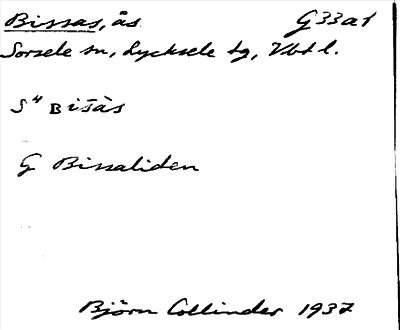 Bissas, ås G33a1
Sorsele sn, Lycksele tg, Vbt l.
S⁴ Bišàs
G Bissaliden
Björn Collinder 1937